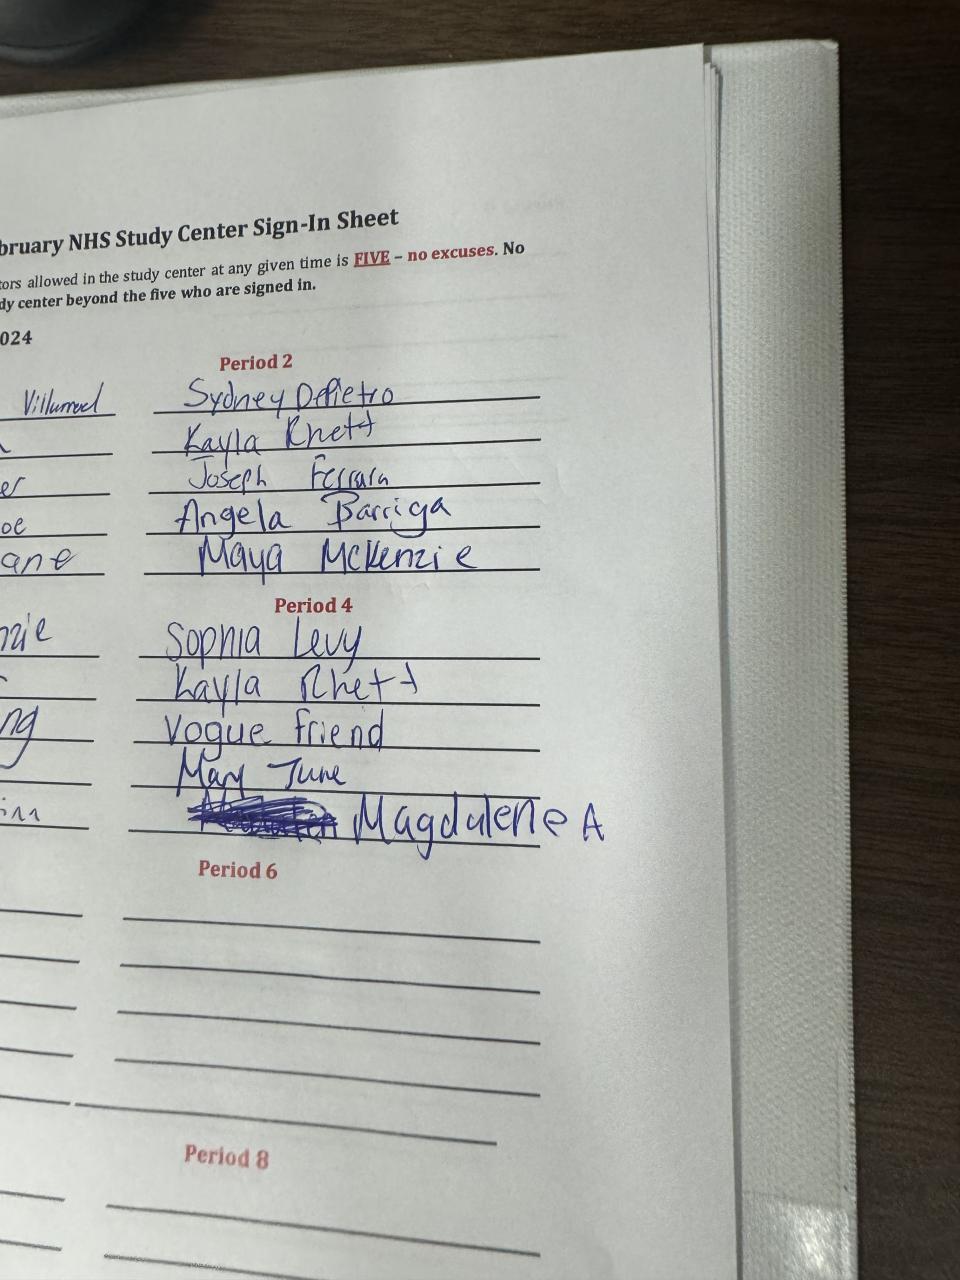 bruary NHS Study Center Sign-In Sheet
tors allowed in the study center at any given time is FIVE – no excuses. No
dy center beyond the five who are signed in.
024
Period 2
Villarroel Sydney DePietro
Kayla Rhett
er Joseph Ferrara
oe Angela Barriga
ane Maya McKenzie
Period 4
nzie Sophia Levy
Kayla Rhett
ng Vogue friend
Mary June
inn Magdalene A
Period 6
Period 8